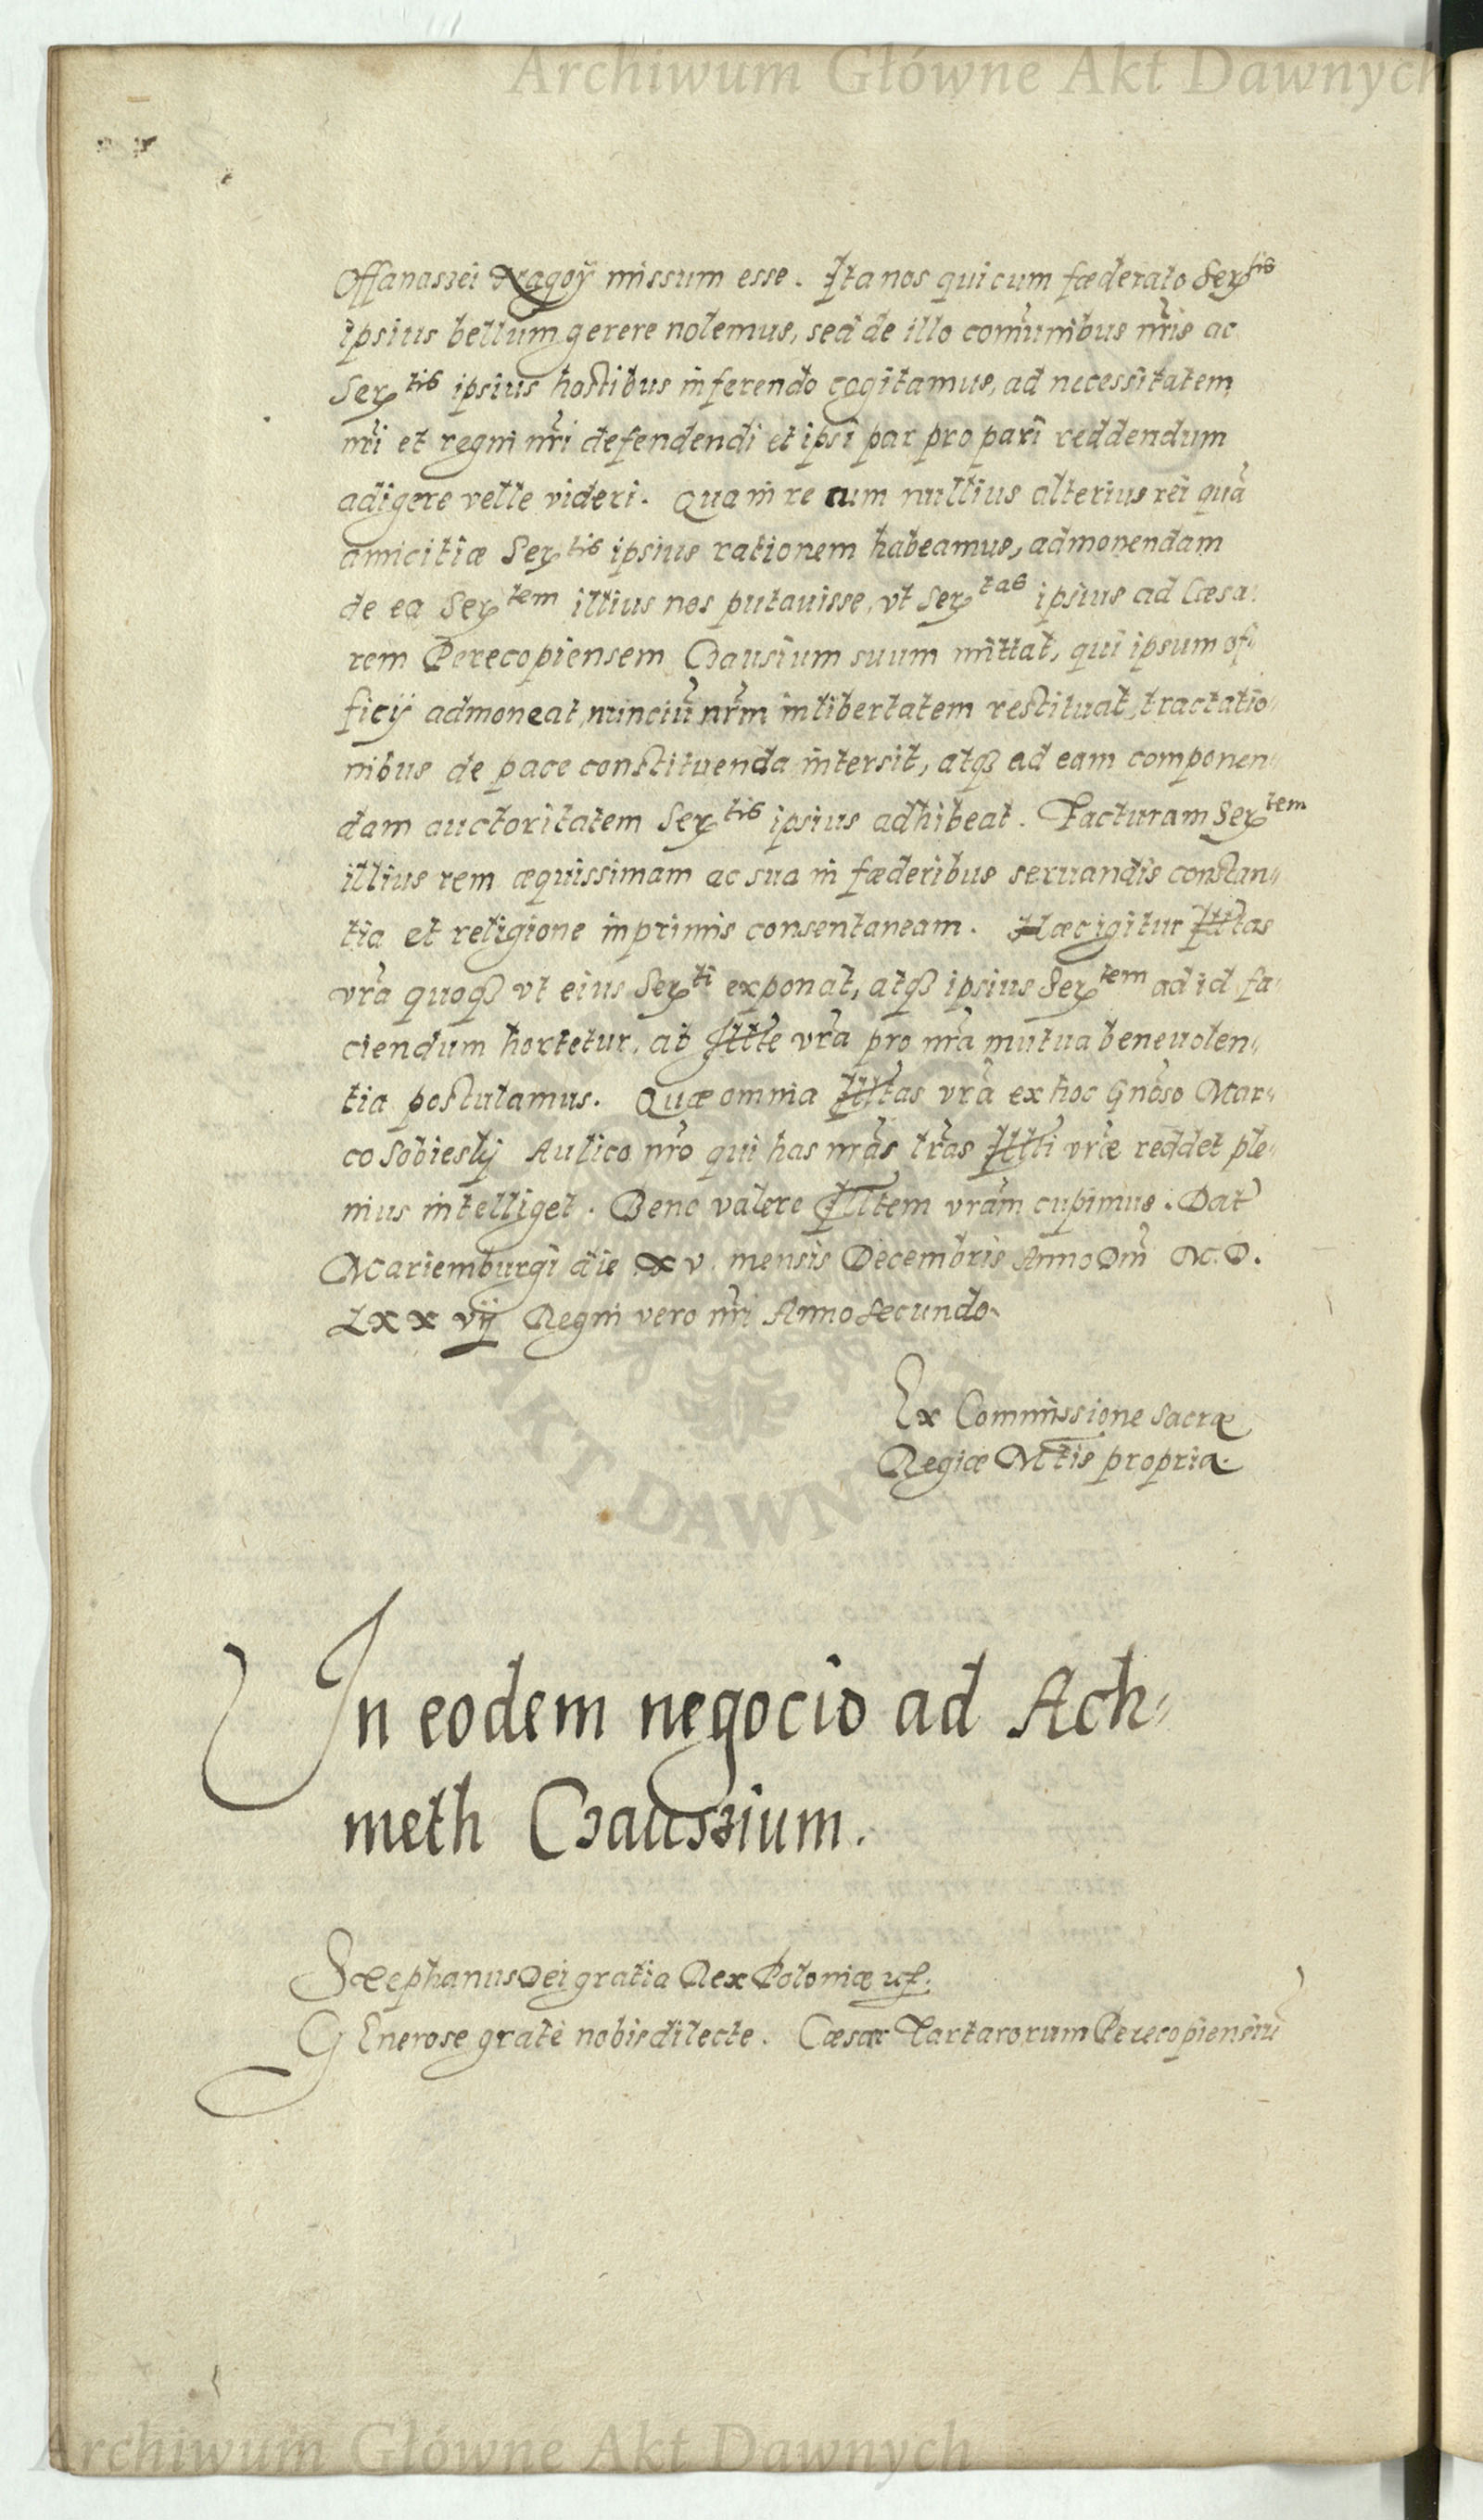 Archiwum Główne Akt Dawnych
Offanaszei Nagoÿ missum esse. Ita nos qui cum fæderato Ser^tis
ipsius bellum gerere nolemus, sed de illo com̃unibus nr̃is ac
Ser^tis ipsius hostibus inferendo cogitamus, ad necessitatem
nr̃i et regni nr̃i defendendi et ipsi par pro pari reddendum
adigere velle videri. Qua in re cum nullius alterius rei quã
amicitiæ Ser^tis ipsius rationem habeamus, admonendam
de ea Ser^tem illius nos putauisse, vt Ser^tas ipsius ad Cæsa-
rem Perecopiensem Czausium suum mittat, qui ipsum of-
ficÿ admoneat, nunciũ nr̃m in libertatem restituat, tractatio-
nibus de pace constituenda intersit, atqꝫ ad eam componen-
dam auctoritatem Ser^tis ipsius adhibeat. Facturam Ser^tem
illius rem æquissimam ac sua in fæderibus seruandis constan-
tia et religione inprimis consentaneam. Hæc igitur Illtas
vr̃a quoqꝫ vt eius Ser^ti exponat, atqꝫ ipsius Ser^tem ad id fa-
ciendum hortetur, ab Illte vr̃a pro nr̃a mutua beneuolen-
tia postulamus. Quæ omnia Illtas vr̃a ex hoc Gnõso Mar-
co Sobiesky Aulico nr̃o qui has nr̃as lr̃as Illti vr̃æ reddet ple-
nius intelliget. Bene valere Illtem vr̃am cupimus. Dat̃
Mariemburgi die xv. mensis Decembris Anno Dnĩ M.D.
Lxxvij Regni vero nr̃i Anno secundo.
Ex Commissione Sacræ
Regiæ Mtis propria.
AKT DAWNYCH
In eodem negocio ad Ach-
meth Czauszium.
Stephanus Dei gratia Rex Poloniæ
GEnerose grate nobis dilecte. Cæsar Tartarorum Perecopiensiũ
Archiwum Główne Akt Dawnych